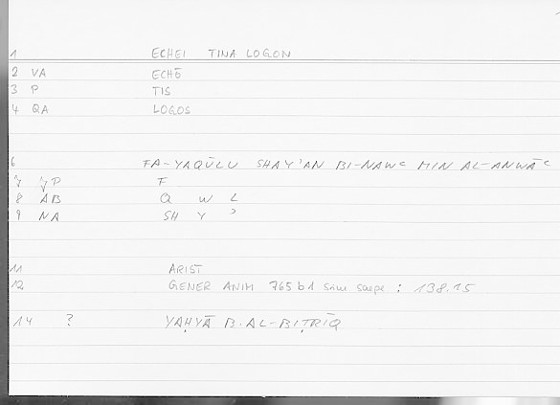 1 ECHEI TINA LOGON
2 VA ECHŌ
3 P TIS
4 QA LOGOS
6 FA-YAQŪLU SHAY'AN BI-NAWʿ MIN AL-ANWĀʿ
7 P F
8 AB Q W L
9 NA SH Y ʾ
11 ARIST
12 GENER ANIM 765 b1 : 138.15
14 ? YAḤYĀ B. AL-BIṬRĪQ